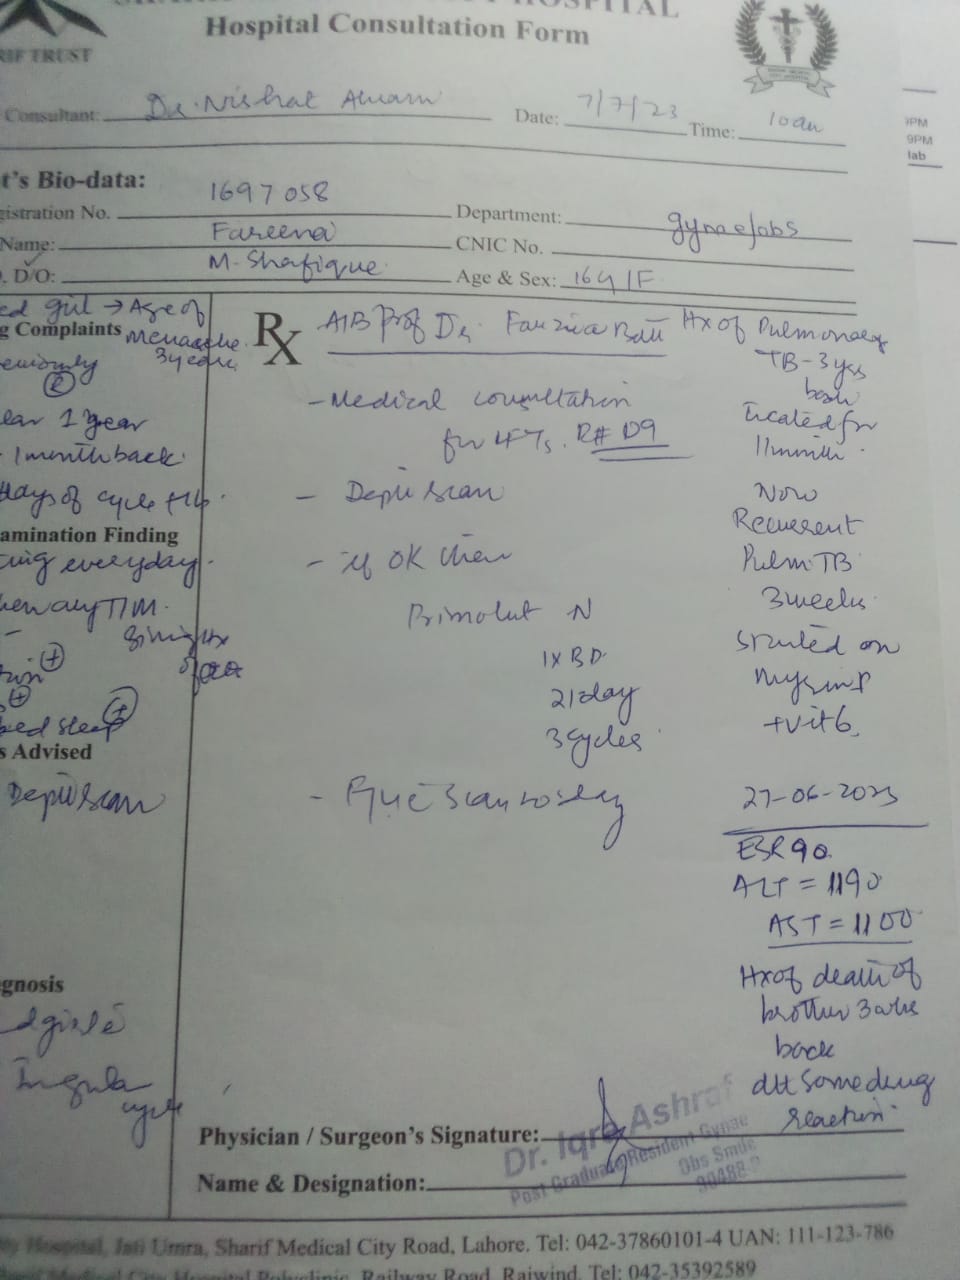 HOSPITAL
Hospital Consultation Form
TRUST
Consultant: Dr. Nishat Date: 7/7/23 Time: 10am
PM
9PM
lab
t's Bio-data:
gistration No. 1697058 Department: gynae/obs
Name: Fareena CNIC No.
D/O: M. Shafique Age & Sex: 16y/F
ed girl → Age of
g Complaints Menarche
3years
2
ear 1 year
1 month back
days of cycle
amination Finding
everyday
+
+
bed sleep +
s Advised
Depth scan
gnosis
cycle
Rx
A/B Prof Dr. Fauzia Butt
- Medical consultation
for LFTs. R# 09
- Depth scan
- if OK then
Primolut N
1x BD
21 day
3 cycles
- F/u c scan
Hx of Pulmonary
TB - 3 yrs
back
treated for
11 month
Now
Recurrent
Pulm. TB
3 weeks
started on
Myrin P
+ vit 6
27-06-2023
ESR 90
ALT = 1190
AST = 1100
Hx of death of
brother 3 wks
back
d/t some drug
reaction
Physician / Surgeon's Signature:
Name & Designation:
Dr. Iqra Ashraf
Post Graduate Resident Gynae
Obs Smdc
Hospital, Jati Umra, Sharif Medical City Road, Lahore. Tel: 042-37860101-4 UAN: 111-123-786
Medical City Hospital Polyclinic, Railway Road, Raiwind. Tel: 042-35392589